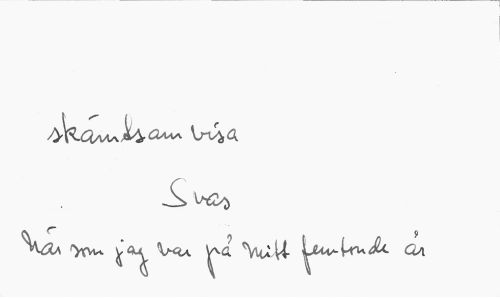 skämtsam visa
Svar
När som jag var på mitt femtonde år